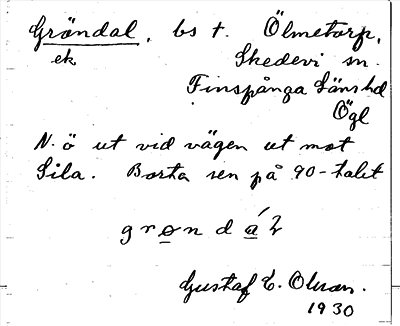 Gröndal, bs t. Ölmetorp,
ek Skedevi sn.
Finspånga läns hd
Ögl
N.ö ut vid vägen ut mot
Sila. Borta sen på 90-talet
grøndál
Gustaf E.
1930